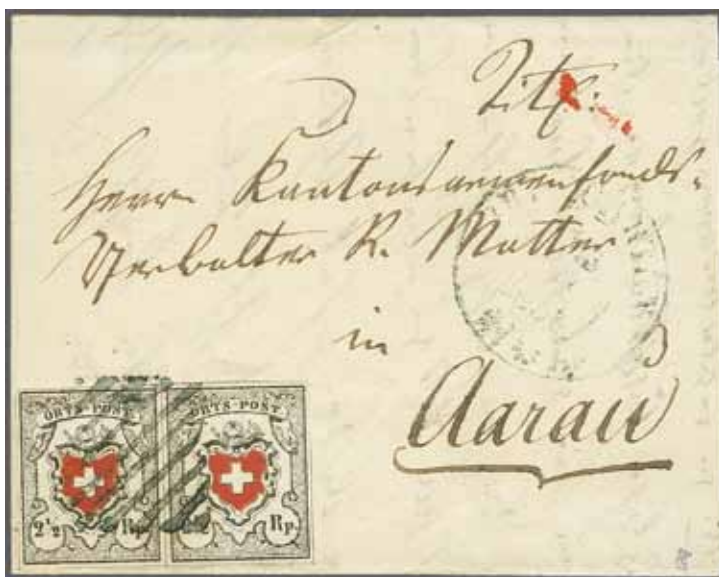 Titl:
Herrn Kantonsarmenfonds-
Verwalter R. Matter
in
Aarau
ORTS-POST ORTS-POST
2 1/2 Rp. 2 1/2 Rp.